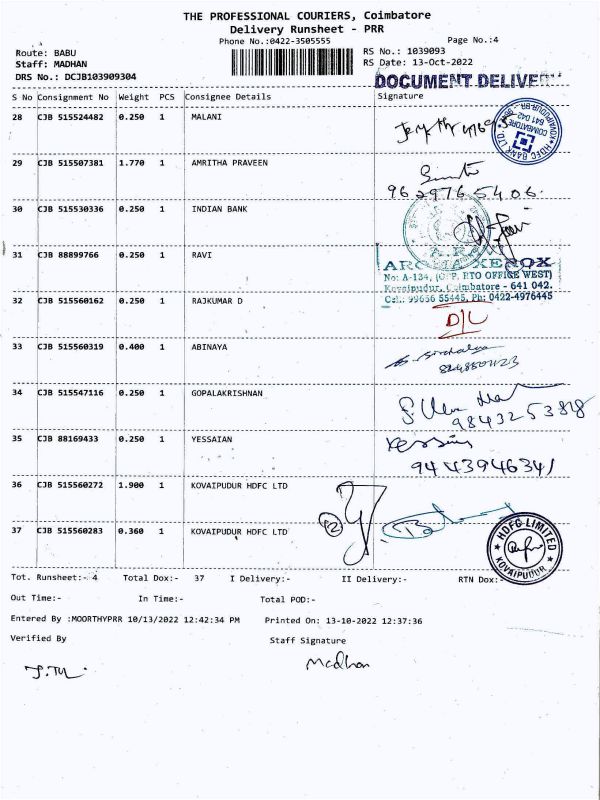 THE PROFESSIONAL COURIERS, Coimbatore
Delivery Runsheet - PRR
Phone No.:0422-3505555
Page No.:4
Route: BABU
RS No.: 1039093
Staff: MADHAN
RS Date: 13-Oct-2022
DRS No.: DCJB103909304
DOCUMENT DELIVE
S No Consignment No Weight PCS Consignee Details Signature
28 CJB 515524482 0.250 1 MALANI
HDFC BANK LTD.
COIMBATORE
641 042
29 CJB 515507381 1.770 1 AMRITHA PRAVEEN
9629765406.
30 CJB 515530336 0.250 1 INDIAN BANK
31 CJB 88899766 0.250 1 RAVI
No: A-134, (OPP. RTO OFFICE WEST)
Kovaipudur, Coimbatore - 641 042.
Cel.: 99656 55445, Ph: 0422-4976445
32 CJB 515560162 0.250 1 RAJKUMAR D
D/L
33 CJB 515560319 0.400 1 ABINAYA
34 CJB 515547116 0.250 1 GOPALAKRISHNAN
35 CJB 88169433 0.250 1 YESSAIAN
9443946341
36 CJB 515560272 1.900 1 KOVAIPUDUR HDFC LTD
37 CJB 515560283 0.360 1 KOVAIPUDUR HDFC LTD
HDFC LIMITED
KOVAIPUDUR
Tot. Runsheet:- 4 Total Dox:- 37 I Delivery:- II Delivery:- RTN Dox:-
Out Time:- In Time:- Total POD:-
Entered By :MOORTHYPRR 10/13/2022 12:42:34 PM Printed On: 13-10-2022 12:37:36
Verified By Staff Signature
Madhan